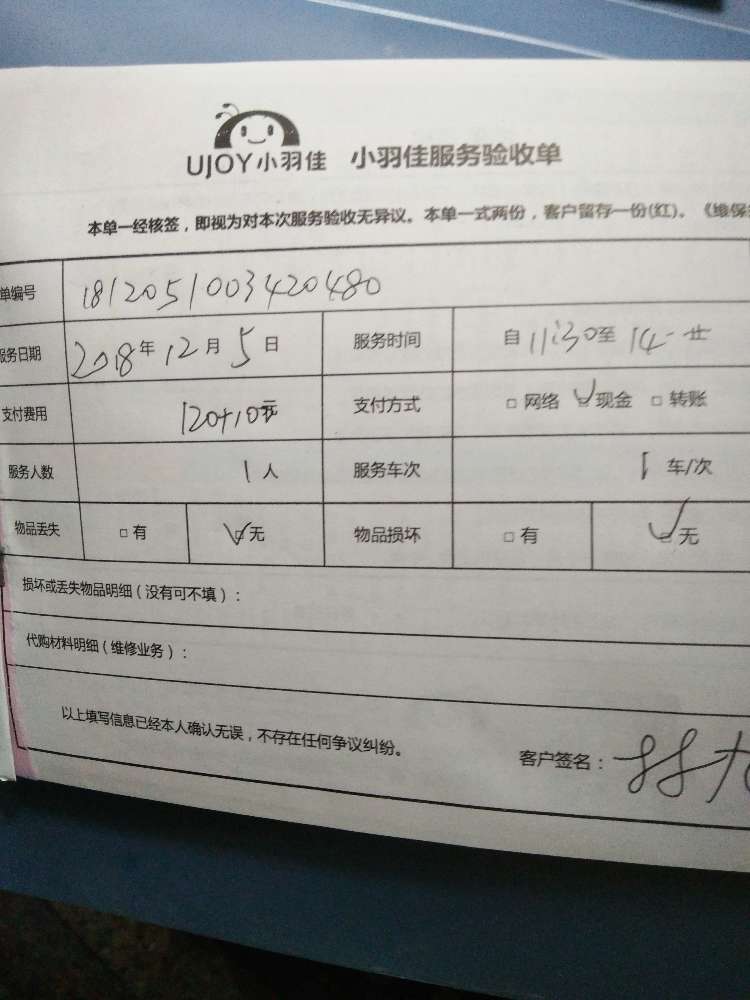 UJOY小羽佳 小羽佳服务验收单
本单一经核签，即视为对本次服务验收无异议。本单一式两份，客户留存一份(红)。《维保
单编号 1812051003420480
服务日期 2018年12月5日 服务时间 自11:30至14
支付费用 120+10元 支付方式 □网络 ☑现金 □转账
服务人数 1人 服务车次 1车/次
物品丢失 □有 ☑无 物品损坏 □有 ☑无
损坏或丢失物品明细（没有可不填）：
代购材料明细（维修业务）：
以上填写信息已经本人确认无误，不存在任何争议纠纷。
客户签名：